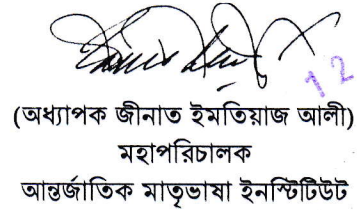 12
(অধ্যাপক জীনাত ইমতিয়াজ আলী)
মহাপরিচালক
আন্তর্জাতিক মাতৃভাষা ইনস্টিটিউট